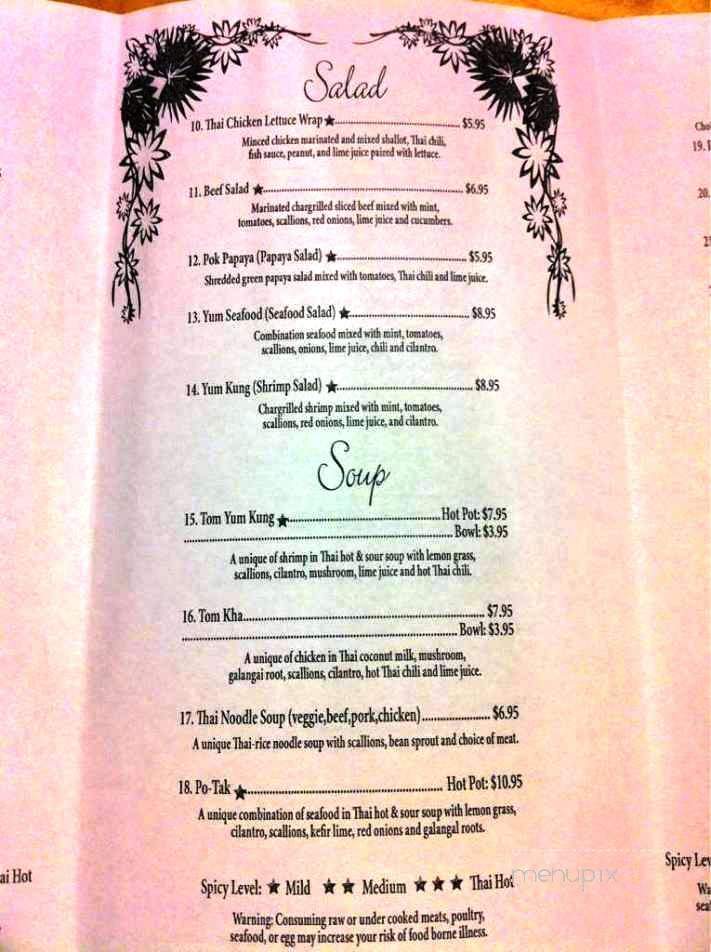 Salad
10. Thai Chicken Lettuce Wrap ★ $5.95
Minced chicken marinated and mixed shallot, Thai chili,
fish sauce, peanut, and lime juice paired with lettuce.
11. Beef Salad ★ $6.95
Marinated chargrilled sliced beef mixed with mint,
tomatoes, scallions, red onions, lime juice and cucumbers.
12. Pok Papaya (Papaya Salad) ★ $5.95
Shredded green papaya salad mixed with tomatoes, Thai chili and lime juice.
13. Yum Seafood (Seafood Salad) ★ $8.95
Combination seafood mixed with mint, tomatoes,
scallions, onions, lime juice, chili and cilantro.
14. Yum Kung (Shrimp Salad) ★ $8.95
Chargrilled shrimp mixed with mint, tomatoes,
scallions, red onions, lime juice, and cilantro.
Soup
15. Tom Yum Kung ★ Hot Pot: $7.95
Bowl: $3.95
A unique of shrimp in Thai hot & sour soup with lemon grass,
scallions, cilantro, mushroom, lime juice and hot Thai chili.
16. Tom Kha $7.95
Bowl: $3.95
A unique of chicken in Thai coconut milk, mushroom,
galangai root, scallions, cilantro, hot Thai chili and lime juice.
17. Thai Noodle Soup (veggie,beef,pork,chicken) $6.95
A unique Thai-rice noodle soup with scallions, bean sprout and choice of meat.
18. Po-Tak ★ Hot Pot: $10.95
A unique combination of seafood in Thai hot & sour soup with lemon grass,
cilantro, scallions, kefir lime, red onions and galangal roots.
Spicy Level: ★ Mild ★ ★ Medium ★ ★ ★ Thai Hot
Warning: Consuming raw or under cooked meats, poultry,
seafood, or egg may increase your risk of food borne illness.
menupix
ai Hot
19.
20.
Spicy Lev